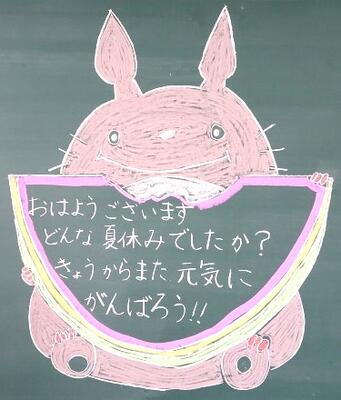 おはようございます
どんな夏休みでしたか？
きょうからまた元気に
がんばろう!!